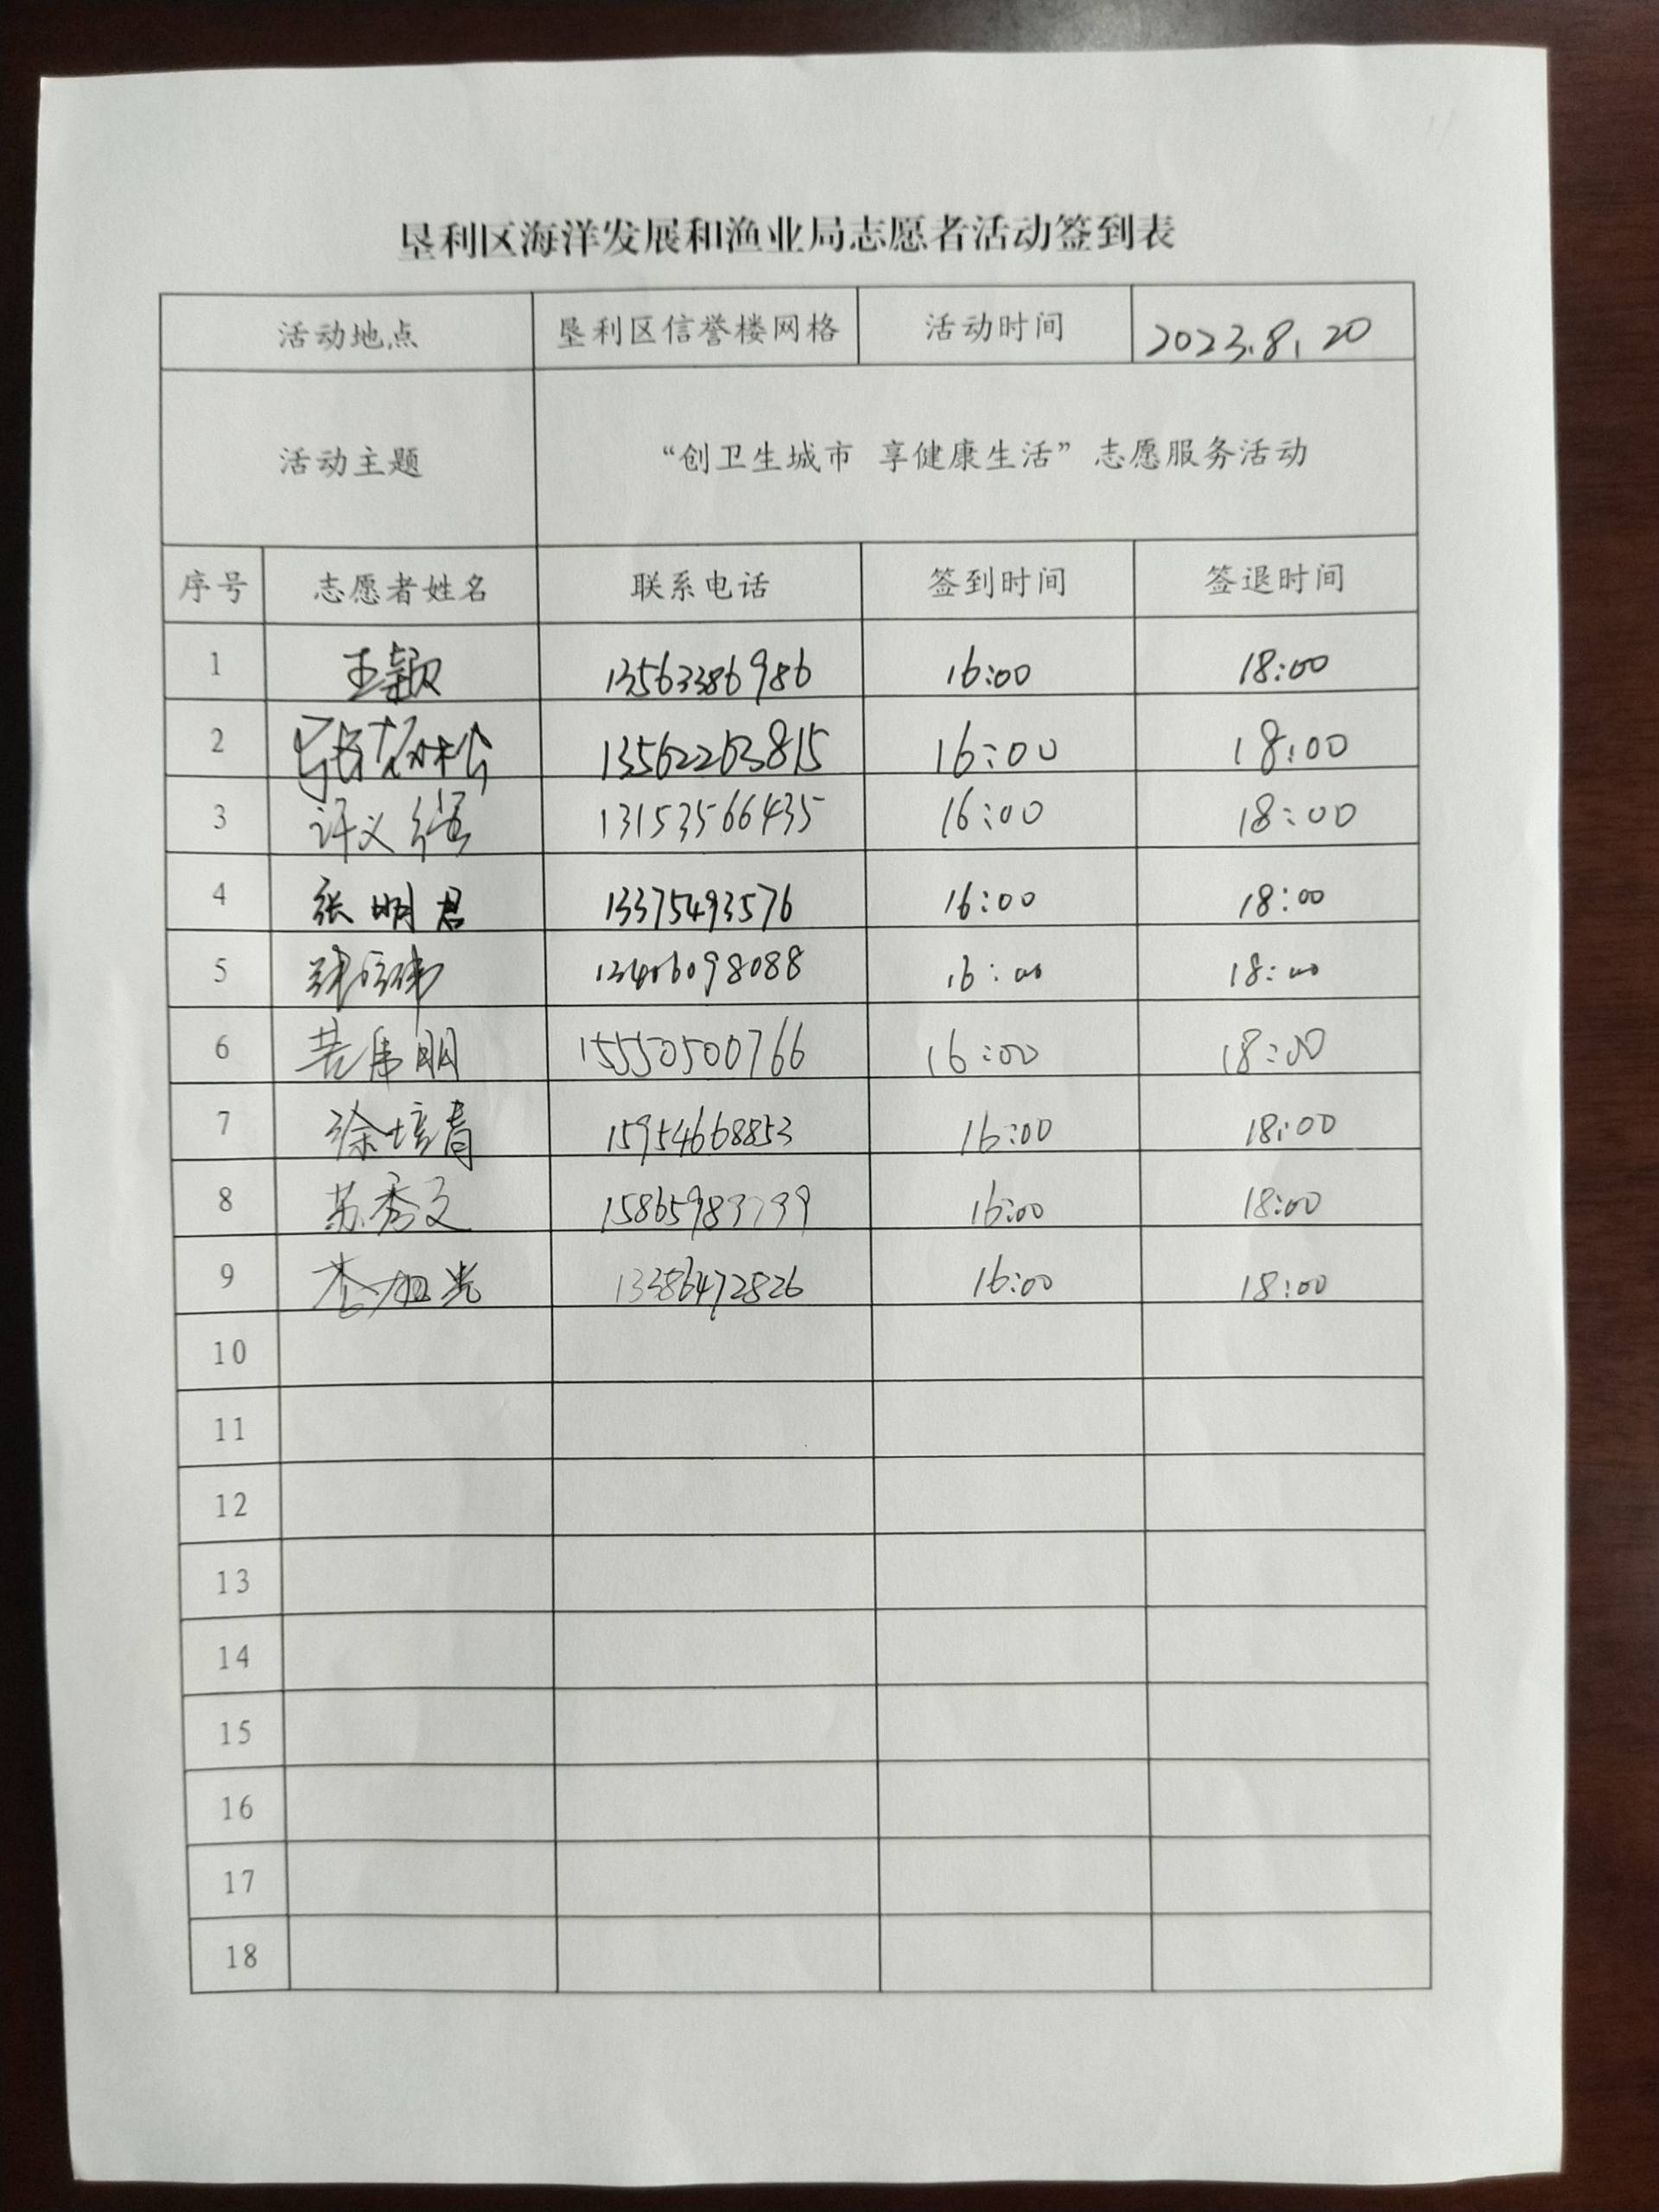 垦利区海洋发展和渔业局志愿者活动签到表
活动地点 垦利区信誉楼网格 活动时间 2023.8.20
活动主题 “创卫生城市 享健康生活”志愿服务活动
序号 志愿者姓名 联系电话 签到时间 签退时间
1 王颖 13563386986 16:00 18:00
2 13562263815 16:00 18:00
3 许义 13153566435 16:00 18:00
4 张明君 13375493576 16:00 18:00
5 13406098088 16:00 18:00
6 15550500766 16:00 18:00
7 徐培青 15954668853 16:00 18:00
8 苏秀文 16:00 18:00
9 李旭光 13386472826 16:00 18:00
10
11
12
13
14
15
16
17
18